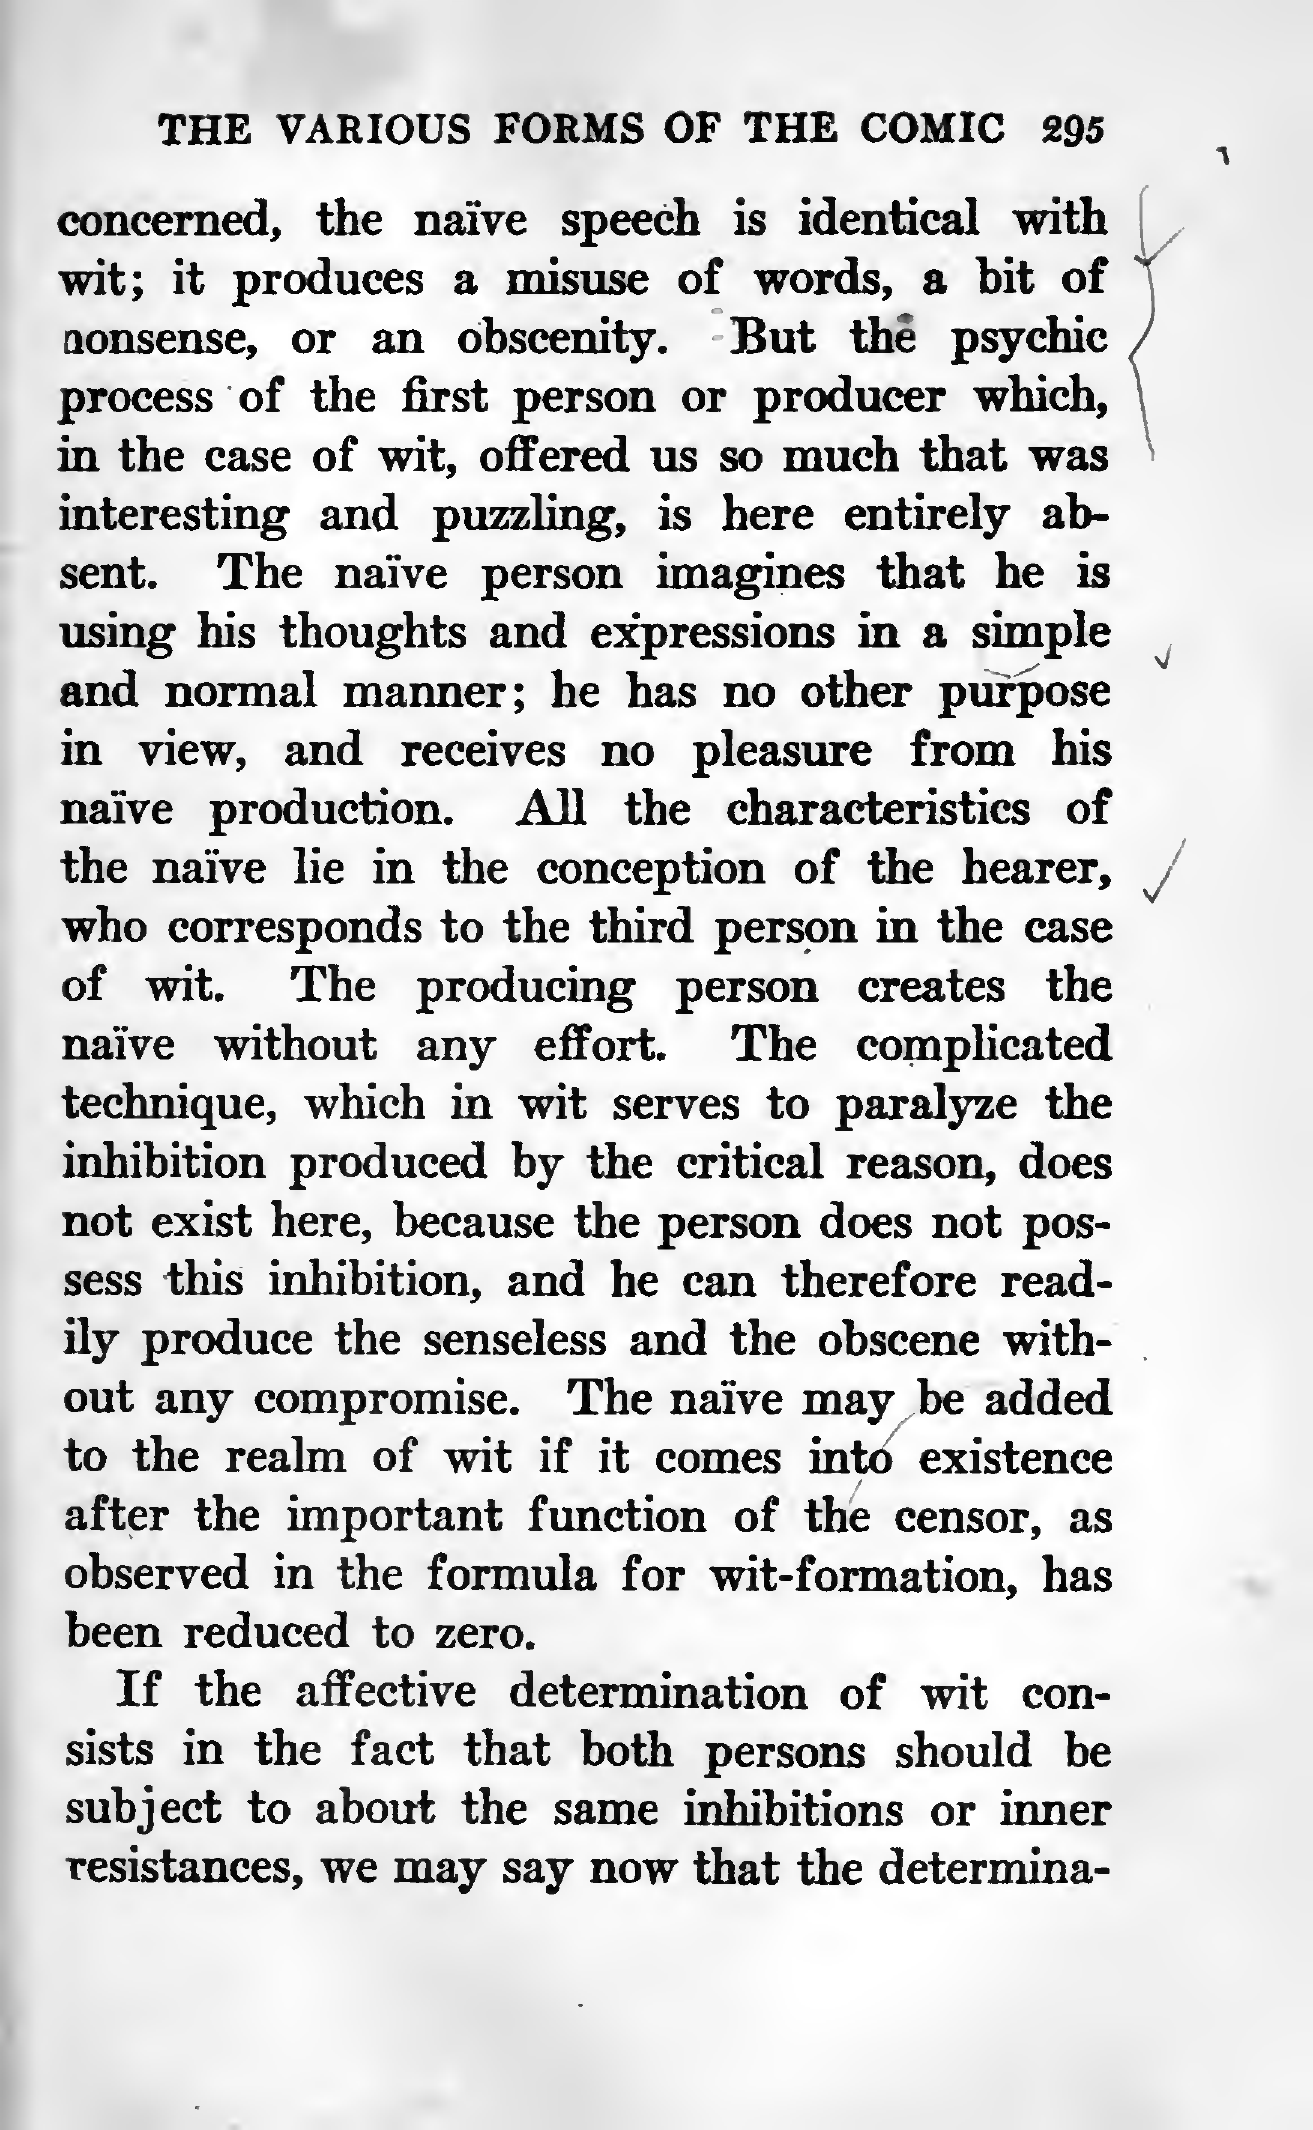 THE VARIOUS FORMS OF THE COMIC 295
concerned, the naïve speech is identical with
wit; it produces a misuse of words, a bit of
nonsense, or an obscenity. But the psychic
process of the first person or producer which,
in the case of wit, offered us so much that was
interesting and puzzling, is here entirely ab-
sent. The naïve person imagines that he is
using his thoughts and expressions in a simple
and normal manner; he has no other purpose
in view, and receives no pleasure from his
naïve production. All the characteristics of
the naïve lie in the conception of the hearer,
who corresponds to the third person in the case
of wit. The producing person creates the
naïve without any effort. The complicated
technique, which in wit serves to paralyze the
inhibition produced by the critical reason, does
not exist here, because the person does not pos-
sess this inhibition, and he can therefore read-
ily produce the senseless and the obscene with-
out any compromise. The naïve may be added
to the realm of wit if it comes into existence
after the important function of the censor, as
observed in the formula for wit-formation, has
been reduced to zero.
If the affective determination of wit con-
sists in the fact that both persons should be
subject to about the same inhibitions or inner
resistances, we may say now that the determina-